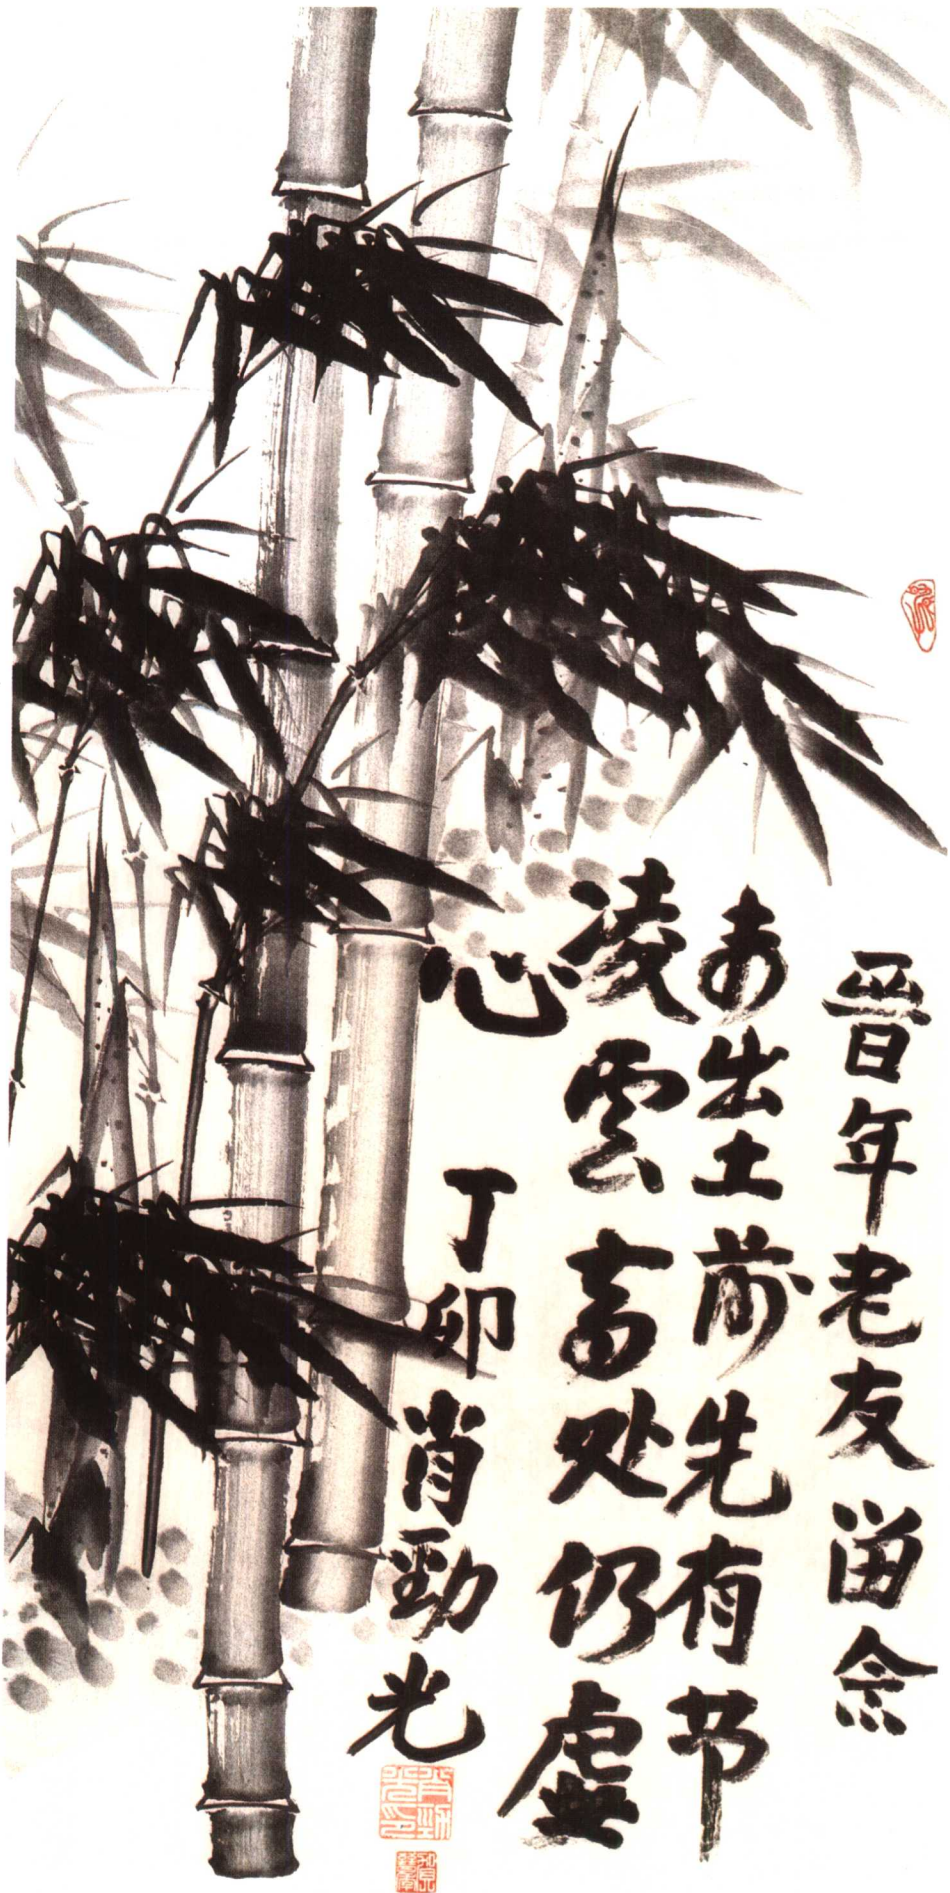 晋年老友留念
未出土前先有节
凌雲高处仍虚
心
丁卯肖劲光